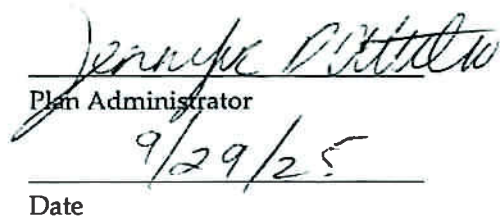 Jennifer
Plan Administrator
9/29/25
Date